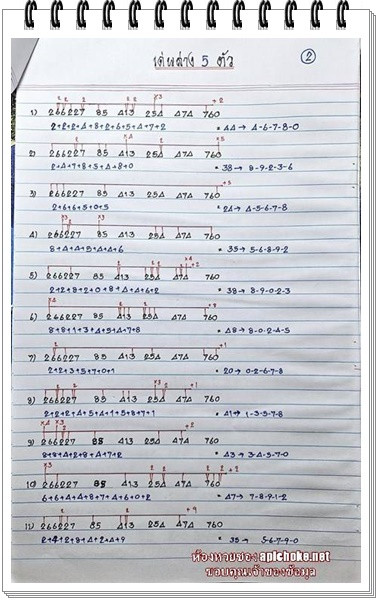 เด่นล่าง 5 ตัว
2
1) 266227 85 413 254 474 760 +2
2+2+2+4+8+2+6+5+4+7+2 = 44 → 4-6-7-8-0
2) 266227 85 413 254 474 760 +5
2+4+7+8+5+4+8+0 = 38 → 8-9-2-3-6
3) 266227 85 413 254 474 760 +5
2+6+6+5+0+5 = 24 → 4-5-6-7-8
4) 266227 85 413 254 474 760
8+4+4+5+4+4+6 = 35 → 5-6-8-9-2
5) 266227 85 413 254 474 760 +2
2+2+8+2+0+8+4+4+6+2 = 38 → 8-9-0-2-3
6) 266227 85 413 254 474 760 +8
8+8+1+3+4+5+4+7+8 = 48 → 8-0-2-4-5
7) 266227 85 413 254 474 760 +1
2+2+3+5+7+0+1 = 20 → 0-2-6-7-8
8) 266227 85 413 254 474 760 +1
2+2+2+4+5+4+1+5+8+7+1 = 41 → 1-3-5-7-8
9) 266227 85 413 254 474 760 +2
8+8+4+2+8+4+7+2 = 43 → 3-4-5-7-0
10) 266227 85 413 254 474 760 +2
6+6+4+4+8+7+4+6+0+2 = 47 → 7-8-9-1-2
11) 266227 85 413 254 474 760 +9
2+4+2+8+4+2+4+9 = 35 → 5-6-7-9-0
ห้องหวยซอง apichoke.net
ขอบคุณเจ้าของข้อมูล